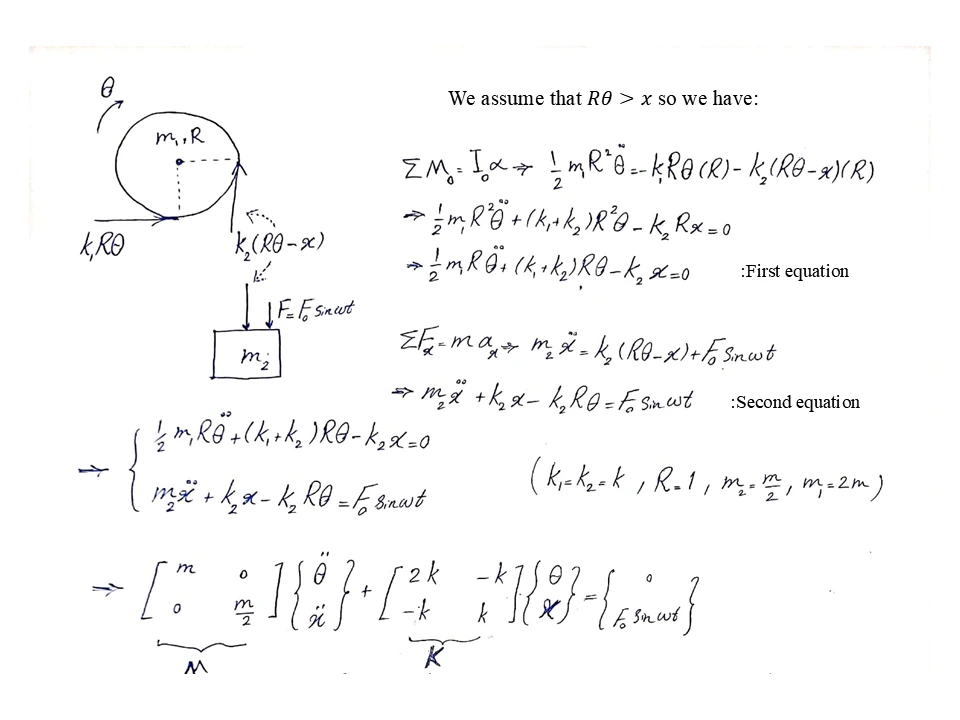 We assume that 𝑅𝜃 > 𝑥 so we have:
θ
m₁, R
k₁Rθ
k₂(Rθ-x)
F=F₀ sin ωt
m₂
ΣM₀ = I₀α ⇒ ½ m₁R²θ̈ = -k₁Rθ(R) - k₂(Rθ-x)(R)
⇒ ½ m₁R²θ̈ + (k₁+k₂)R²θ - k₂Rx = 0
⇒ ½ m₁Rθ̈ + (k₁+k₂)Rθ - k₂x = 0 :First equation
ΣFₓ = m aₓ ⇒ m₂ẍ = k₂(Rθ-x) + F₀ sin ωt
⇒ m₂ẍ + k₂x - k₂Rθ = F₀ sin ωt :Second equation
⇒ { ½ m₁Rθ̈ + (k₁+k₂)Rθ - k₂x = 0
m₂ẍ + k₂x - k₂Rθ = F₀ sin ωt
(k₁=k₂=k, R=1, m₂=m/2, m₁=2m)
⇒ [m 0; 0 m/2]{θ̈; ẍ} + [2k -k; -k k]{θ; x} = {0; F₀ sin ωt}
M K